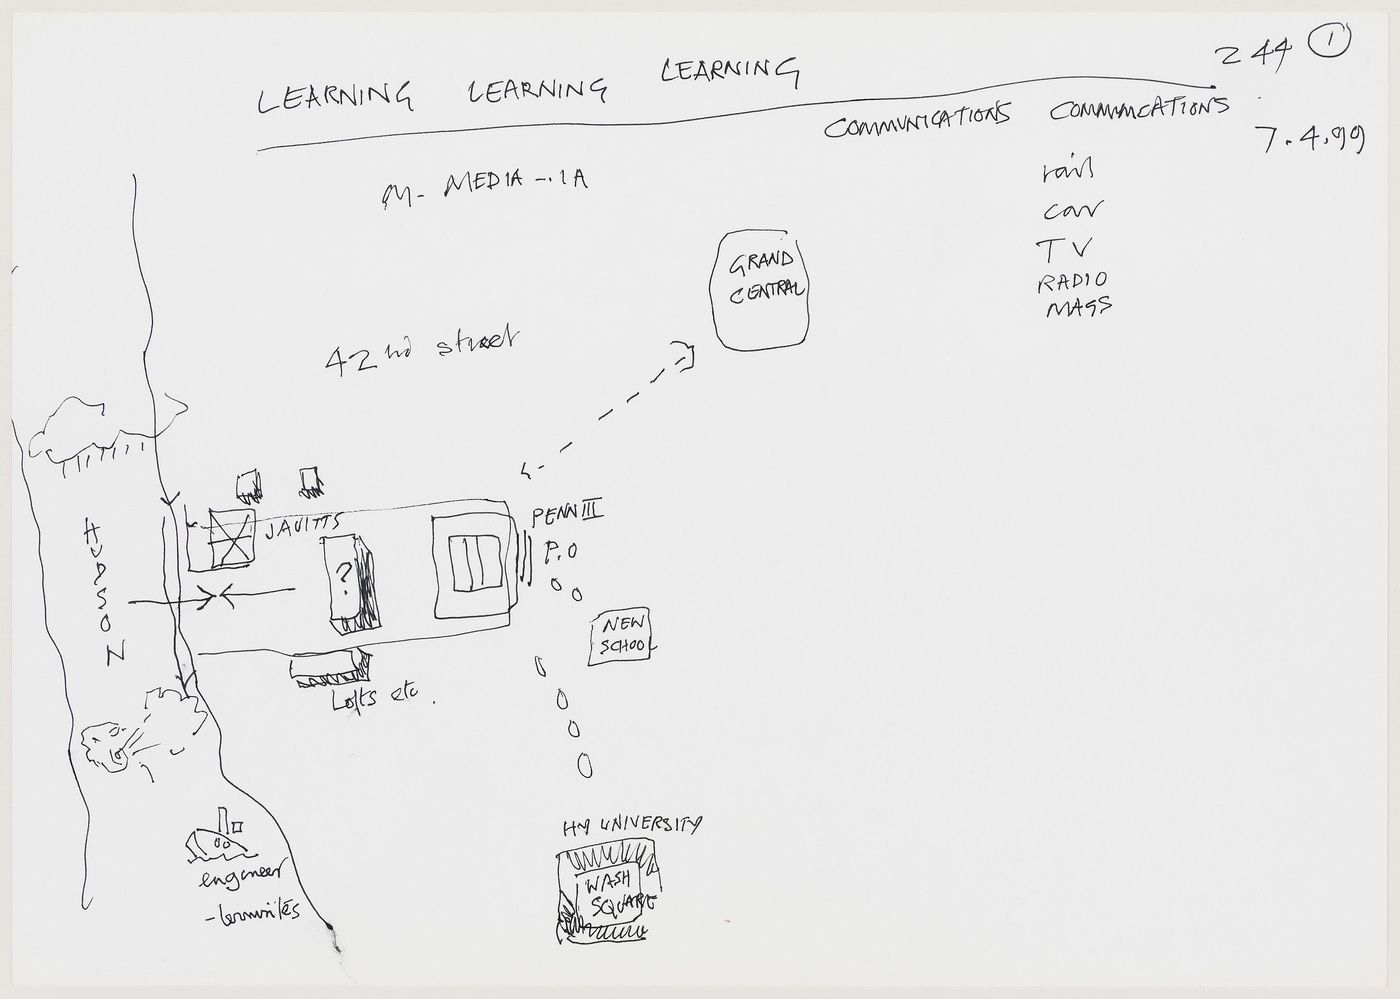 244 1
LEARNING LEARNING LEARNING
COMMUNICATIONS COMMUNICATIONS
7.4.99
M- MEDIA -.IA
rail
car
TV
RADIO
MAGS
GRAND
CENTRAL
42nd street
HUDSON
JAVITTS
?
PENN III
P.O
NEW
SCHOOL
Lofts etc.
HY UNIVERSITY
WASH
SQUARE
engineer